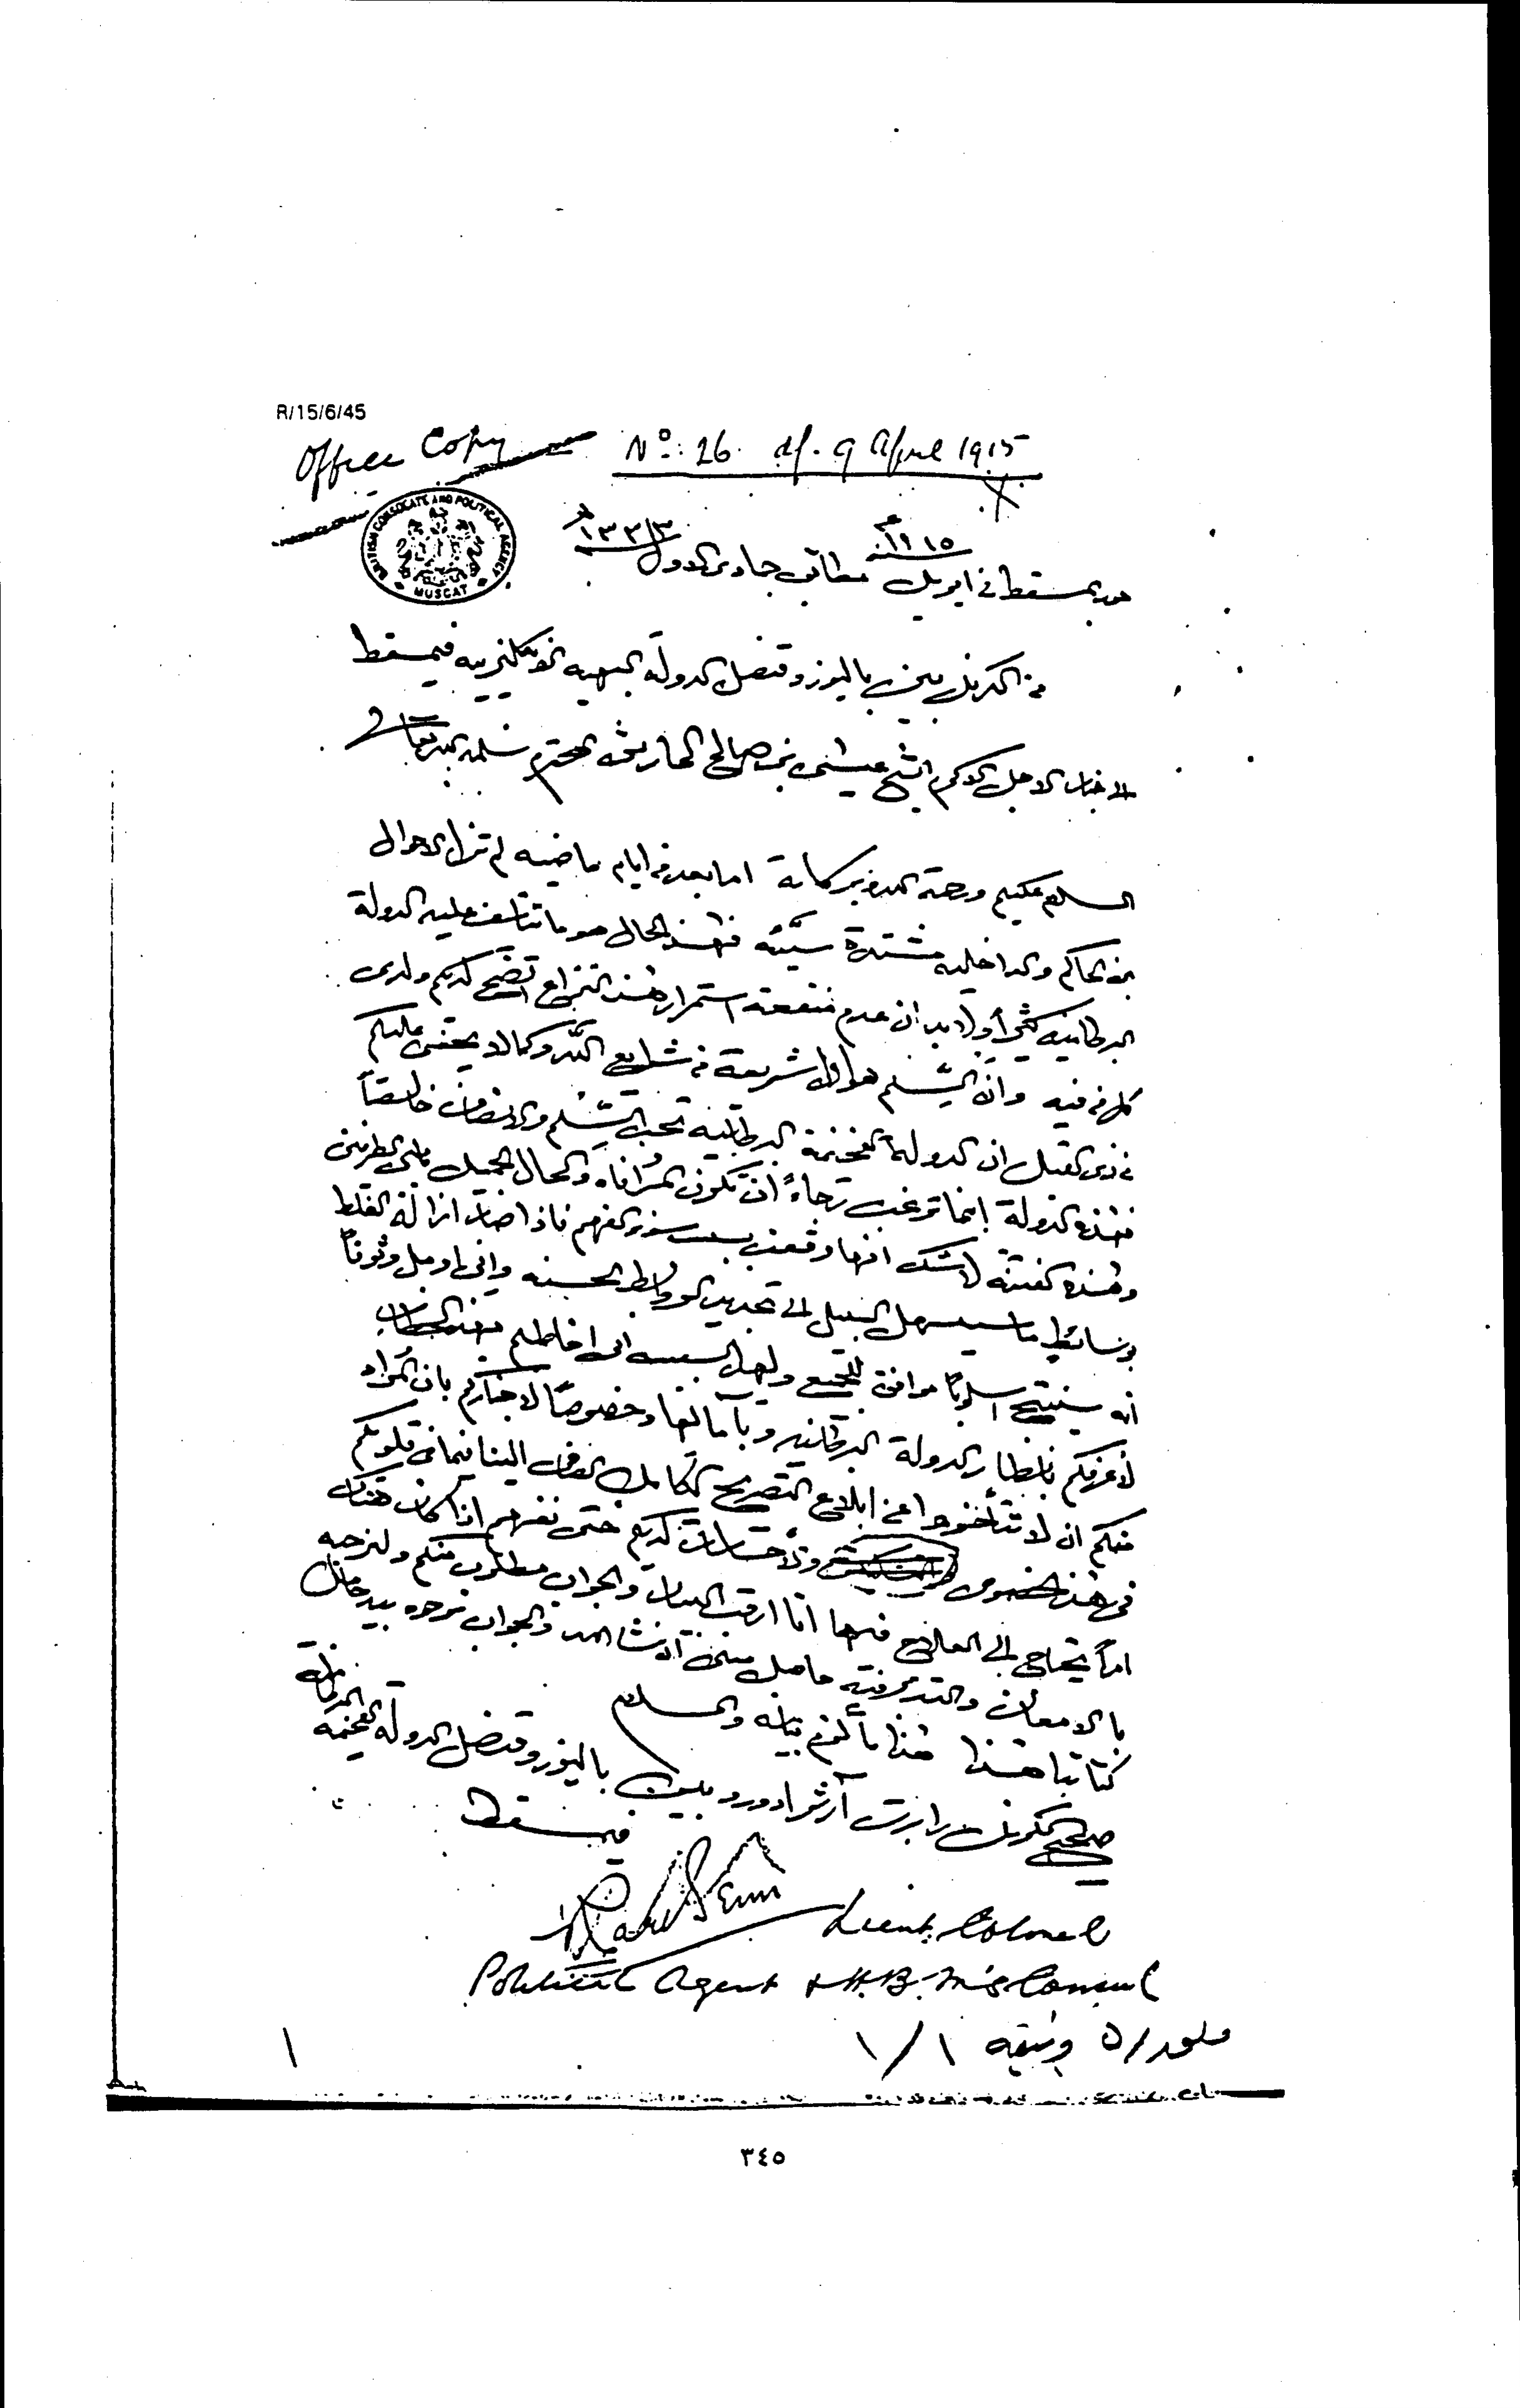 R/15/6/45
Office Copy
No: 26. d/. 9 April 1915
BRITISH CONSULATE AND POLITICAL AGENCY
MUSCAT
بمسقط في ابريل ١٩١٥ مطابق جمادى الاول ١٣٣٣
من الكرنل بين باليوز وقنصل الدولة البهيه الانكليزيه فيمسقط
الاجل الاكرم الشيخ عيسى بن صالح الحارثي المحترم سلمه الله تعالى
السلام عليكم ورحمة الله وبركاته اما بعد من ايام ماضيه لم تزل الاحوال
بين الحاكم والداخليه مشتدة سيئه فهذا الحال هو ما تتأسف عليه الدولة
البرطانيه كثيراً ولابد ان عدم منفعة استمرار هذا النزاع اتضح لديكم ولدى
كل من فيه وان السلم هو اول شريعة من شرايع الله وكما لا يخفى عليكم
ان الدولة الفخيمة البرطانيه تحب السلم والانصاف خالصاً
فهذه الدولة انما ترغب رجاءً ان تكون المرافاه والحال الجميل بين الطرفين
وهذه الفتنة لا شك انها وقعت بسبب سوء الفهم فاذا صار ازالة الغلط
سيسهل السبيل الى تجديد الروابط الحسنه واني اومل وثوقاً
انه سينتج اسلوبا موافق للجميع ولهذا السبب اني اخاطبكم بهذا الخطاب
لأعرفكم بانظار الدولة البرطانيه وبآمالها وخصوصاً لاخباركم بان المراد
منكم ان لا تتأخروا عن ابلاغ التصريح الكامل الينا فيما في قلوبكم
في هذا الخصوص لديكم حتى نفهم اذا كان هناك
امراً يحتاج الى العلاج انا ارقب البيان والجواب مطلوب منكم ولنزجه
بالامعان حاصل منى ان شاء الله والجواب نرجوه بيد حامل
كتابنا هذا هذا ما لزم بيانه والسلام
صحيح الكرنل رابرت آرثر ادورد بين باليوز وقنصل الدولة الفخيمة البرطانية
فيمسقط
Lieut. Colonel
Political Agent & H.B.M's Consul
ملحق/٥ وثيقه ١/١
١
٣٤٥